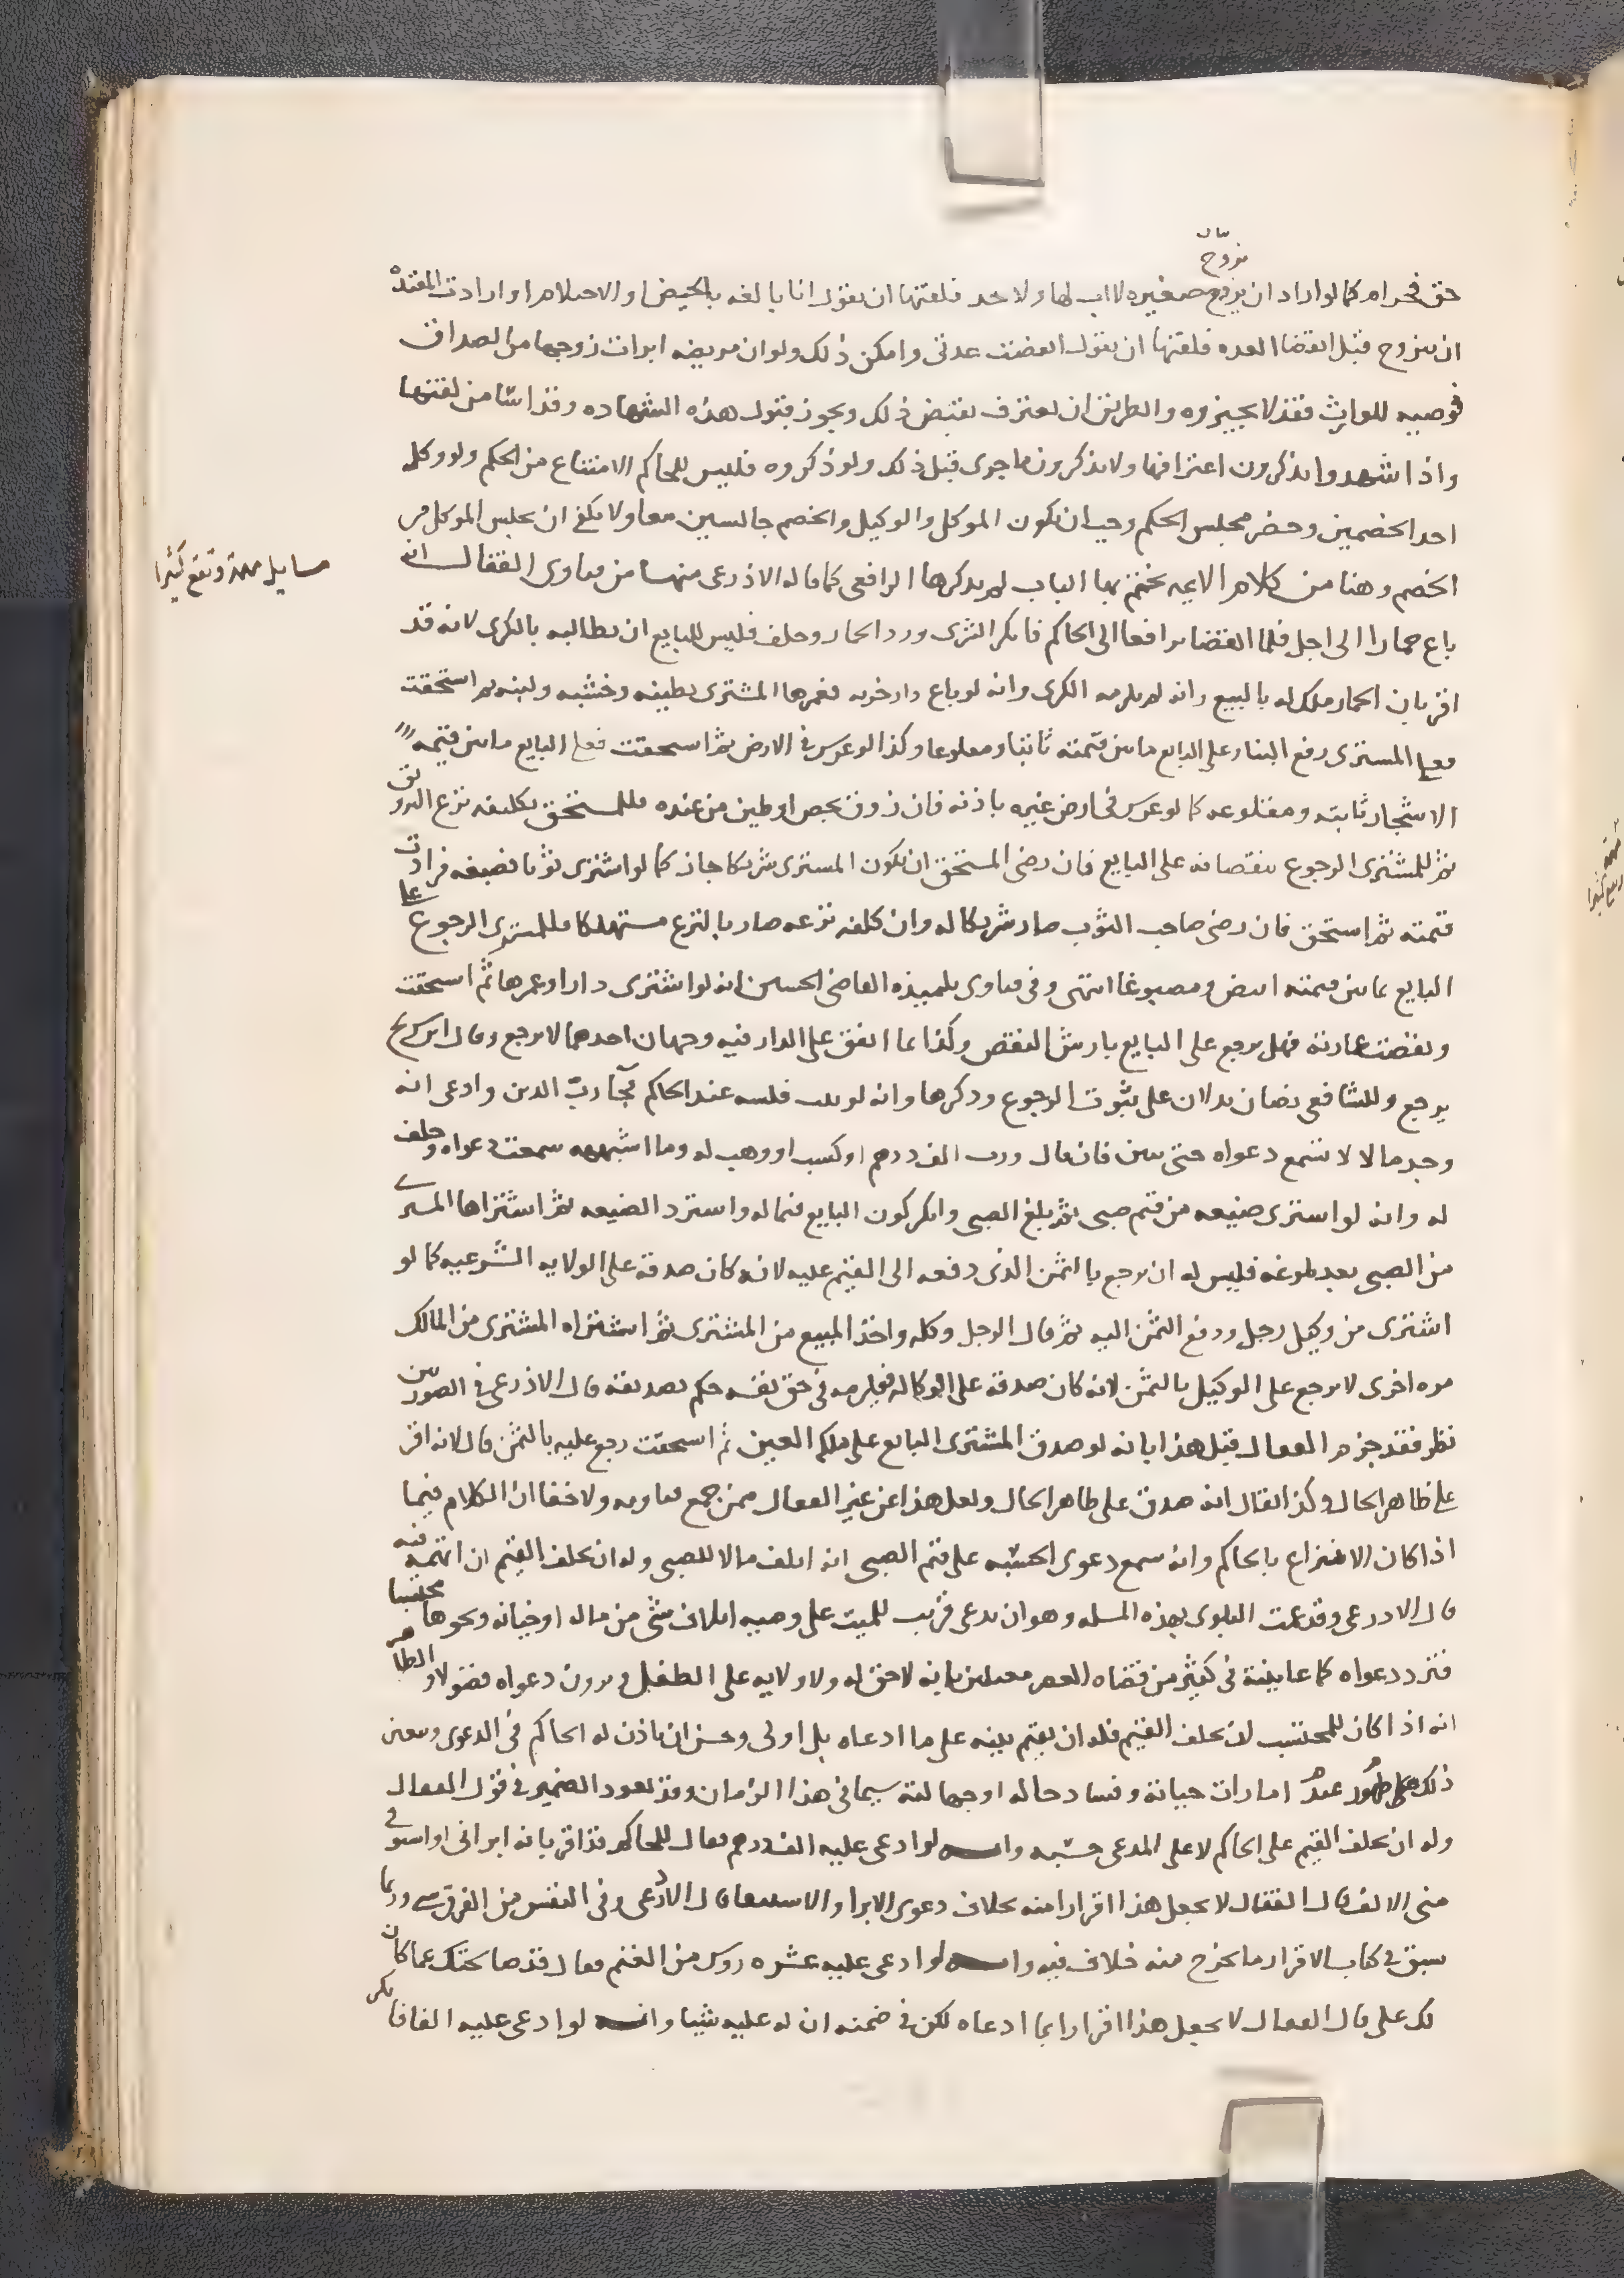 حق فحرام كما لو اراد ان يزوج صغيره لا اب لها ولا جد فلقنها ان تقول انا بالغه بالحيض او الاحتلام او ارادت المعتدة
ان تتزوج قبل انقضا العده فلقنها ان تقول انقضت عدتى وامكن ذلك ولو ان مريضه ابرات زوجها من الصداق
فوصيه للوارث فقد لا يجيزوه والطريق ان تعترف بقبض ذلك ويجوز قبول هذه الشهاده وقد اشا من لقنها
واذا شهدوا يذكرون اعترافها ولا يذكرون ما جرى قبل ذلك ولو ذكروه فليس للحاكم الامتناع من الحكم ولو وكله
احد الخصمين وحضر مجلس الحكم وجب ان يكون الموكل والوكيل والخصم جالسين معا ولا يكفى ان يجلس الموكل من
الخصم وهنا من كلام الايمه نختم بها الباب لم يذكرها الرافعى كما قاله الاذرعى منها من فتاوى القفال انه
باع حمارا الى اجل فلما انقضا ترافعا الى الحاكم فانكر الشرى ورد الحمار وحلف فليس للبايع ان يطالبه بالكرى لانه قد
اقر بان الحمار ملك له بالبيع وانه لم يلزمه الكرى وانه لو باع دار خربه فعمرها المشترى بطينه وخشبه ولبنه ثم استحقت
فعلى المشترى رفع البنا وعلى البايع ما بين قيمته ثابتا ومقلوعا وكذا لو غرس فى الارض ثم استحقت فعلى البايع ما بين قيمه
الاشجار ثابته ومقلوعه كما لو غرس فى ارض غيره باذنه فان زوق بجص او طين من عنده فللمستحق تكليفه نزع التزويق
ثم للمشترى الرجوع بنقصانه على البايع فان رضى المستحق ان يكون المشترى شريكا جاز كما لو اشترى ثوبا فصبغه فزادت
قيمته ثم استحق فان رضى صاحب الثوب صار شريكا له وان كلفه نزعه صار بالنزع مستهلكا فللمشترى الرجوع على
البايع بما بين قيمته ابيض ومصبوغا انتهى وفى فتاوى تلميذه القاضى الحسين انه لو اشترى دارا وعمرها ثم استحقت
ونقضت عمارته فهل يرجع على البايع بارش النقص وكذا بما انفق على الدار فيه وجهان احدهما لا يرجع وقال ابن سريج
يرجع وللشافعى نصان يدلان على ثبوت الرجوع وذكرها وانه لو ثبت فلسه عند الحاكم فجا رب الدين وادعى انه
وجد مالا لا تسمع دعواه حتى يبين فان قال ورث الف درهم او كسب او وهب له وما اشبهه سمعت دعواه وحلف
له وانه لو اشترى ضيعه من قيم صبى ثم بلغ الصبى وانكر كون البايع قيما له واسترد الضيعه ثم اشتراها المشترى
من الصبى بعد بلوغه فليس له ان يرجع بالثمن الذى دفعه الى القيم عليه لانه كان صدقه على الولايه الشرعيه كما لو
اشترى من وكيل رجل ودفع الثمن اليه ثم قال الرجل وكله واخذ المبيع من المشترى ثم اشتراه المشترى من المالك
مره اخرى لا يرجع على الوكيل بالثمن لانه كان صدقه على الوكاله فيلزمه فى حق نفسه حكم تصديقه قال الاذرعى فى الصورتين
نظر فقد جزم القفال قبل هذا بانه لو صدق المشترى البايع على ملكه العين ثم استحقت رجع عليه بالثمن قال لانه اقر
على ظاهر الحال وكذا يقال انه صدق على ظاهر الحال ولعل هذا عن غير القفال ممن جمع فتاويه ولا خفا ان الكلام فيما
اذا كان الانتزاع بالحاكم وانه سمع دعوى الحسبه على قيم الصبى انه اتلف مالا للصبى وله ان يحلف القيم ان اتهمه فيه
قال الاذرعى وقد عمت البلوى بهذه المسله وهو ان يدعى قريب للميت على وصيه اتلاف شى من ماله او خيانه ونحوها محتسبا
فترد دعواه كما عاينته فى كثير من قضاه العصر معللين بانه لا حق له ولا ولايه على الطفل ويرون دعواه فضولا والظاهر
انه اذا كان للمحتسب ان يحلف القيم فله ان يقيم بينه على ما ادعاه بل اولى وحسن ان ياذن له الحاكم فى الدعوى ويتعين
ذلك عند ظهور امارات خيانة وفساد حاله او جهالته سيما فى هذا الزمان وقد يعود الضمير فى قول القفال
وله ان يحلف القيم على الحاكم لا على المدعى حسبه وانه لو ادعى عليه الف درهم فقال للحاكم قد اقر بانه ابرانى او استوفى
منى الالف قال القفال لا يجعل هذا اقرارا منه بخلاف دعوى الابرا والاستيفا قال الاذرعى وفى النفس من الفرق شى وربما
سبق فى كتاب الاقرار ما يخرج منه خلاف فيه وانه لو ادعى عليه عشره روس من الغنم فقال قد صالحتك عما كان
لك على قال القفال لا يجعل هذا اقرارا بما ادعاه لكن فى ضمنه ان له عليه شيا وانه لو ادعى عليه الفا فانكر
مسايل مهمة وتقع كثيرا